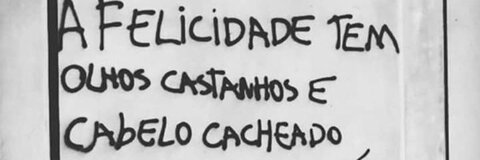 A FELICIDADE TEM
OLHOS CASTANHOS E
CABELO CACHEADO